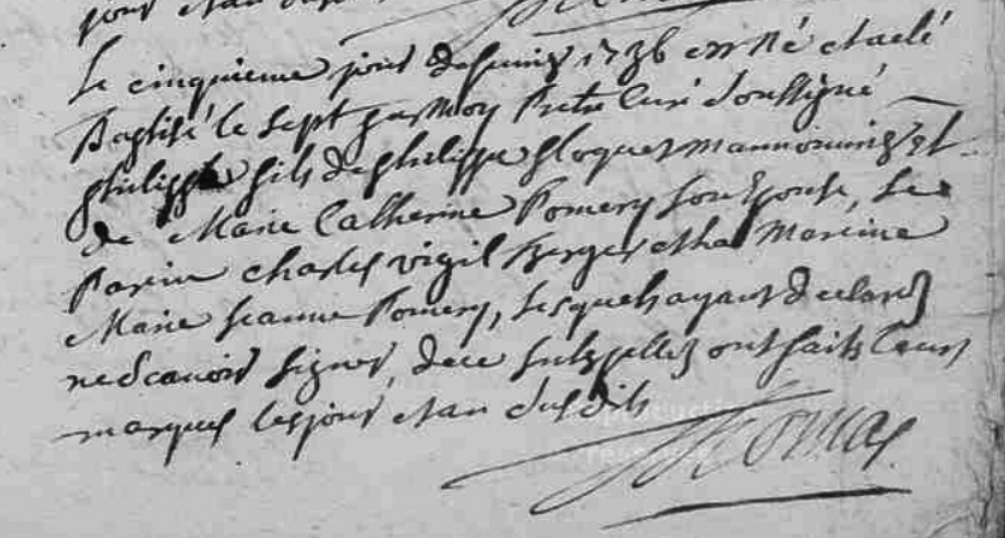 jours et an
Le cinquieme jour de juin 1736 est né et a eté
Baptisé le sept par Moy Pretre Curé Soussigné
philippe fils de philippe floquet mannouvrier et
de Marie Catherine Pomery son Epouse, Le
Parein charles vigil Berger et la Mareine
Marie jeanne Pomery, Lesquels ayant declaréz
ne Scavoir signer, de ce interpelléz ont faits leurs
marques les jour et an susdits
Thomas